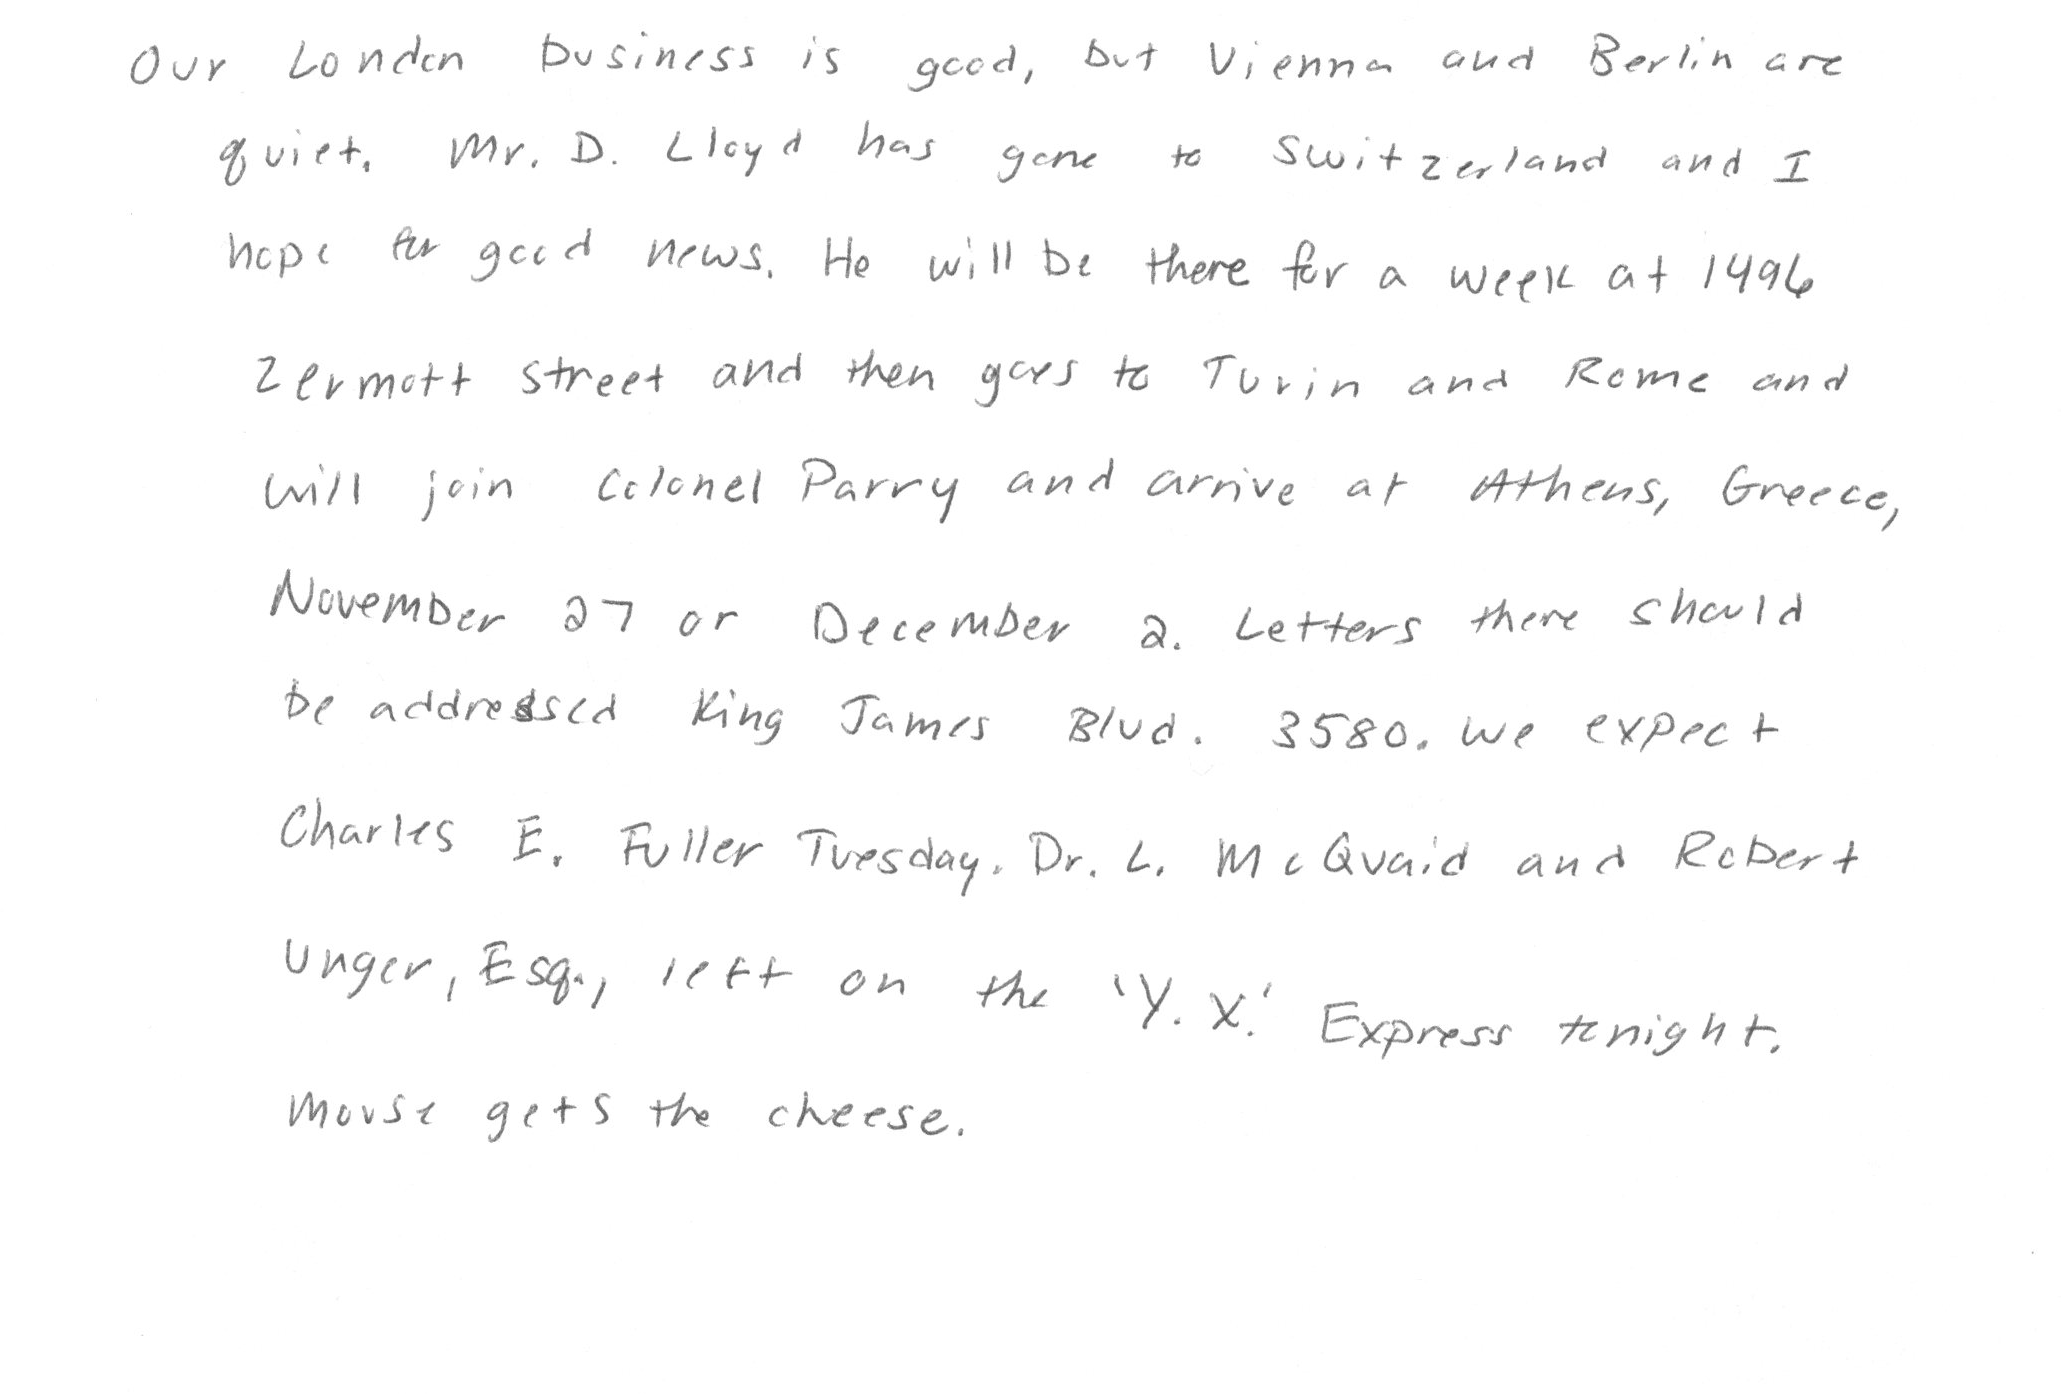 Our London business is good, but Vienna and Berlin are
quiet. Mr. D. Lloyd has gone to Switzerland and I
hope for good news. He will be there for a week at 1496
Zermott street and then goes to Turin and Rome and
will join Colonel Parry and arrive at Athens, Greece,
November 27 or December 2. Letters there should
be addressed King James Blvd. 3580. We expect
Charles E. Fuller Tuesday. Dr. L. McQuaid and Robert
Unger, Esq., left on the 'Y. X.' Express tonight.
Mouse gets the cheese.